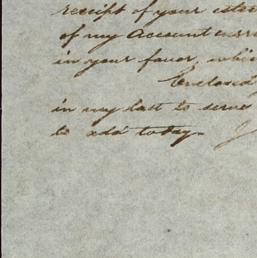 receipt of your
of my Account
in your favor, which
Enclosed
in my last to serve
to add today.